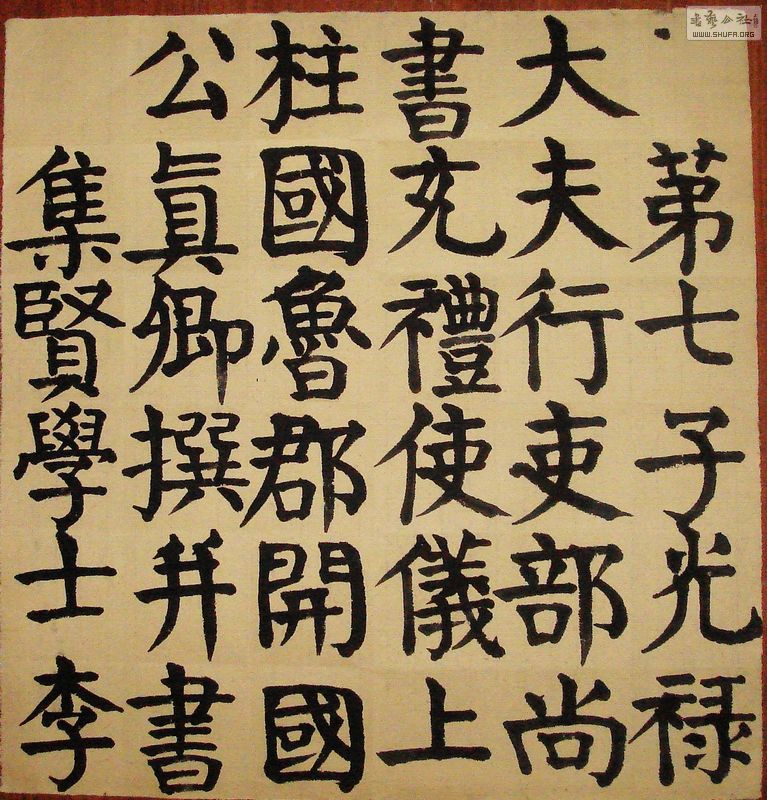 第七子光禄
大夫行吏部尚
書充禮使儀上
柱國魯郡開國
公眞卿撰并書
集賢學士李
WWW.SHUFA.ORG